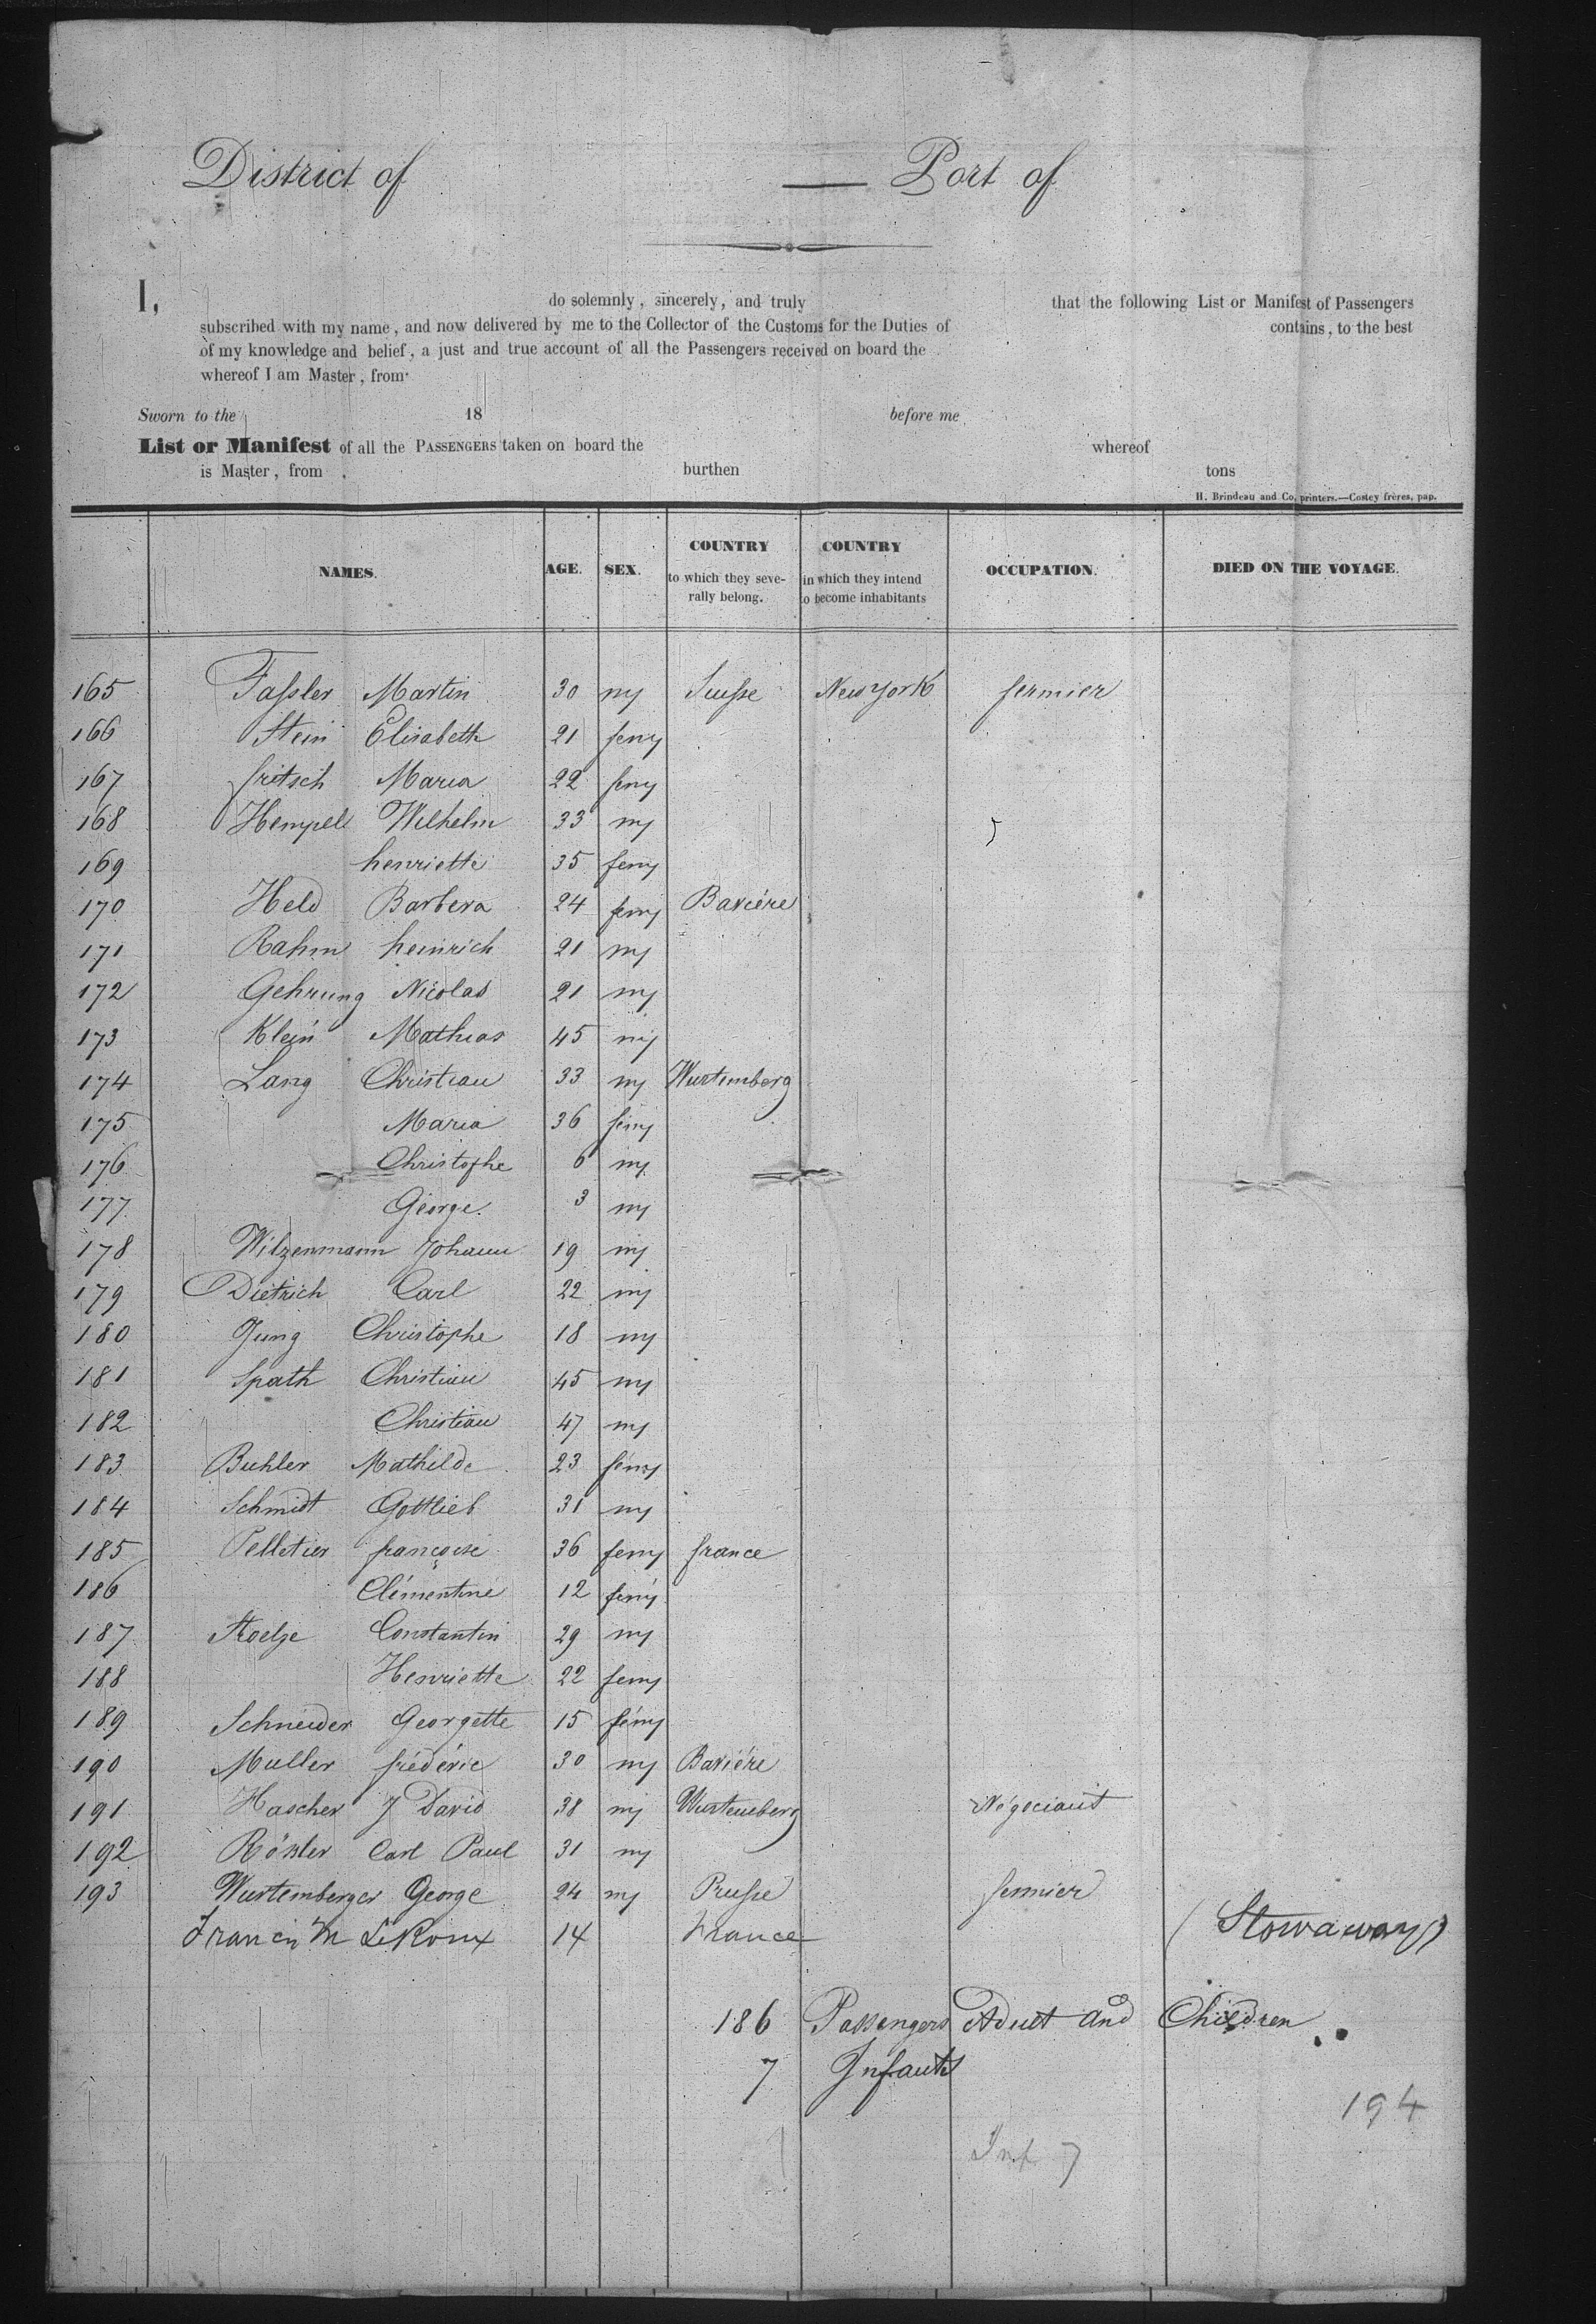 District of — Port of
I, do solemnly, sincerely, and truly that the following List or Manifest of Passengers
subscribed with my name, and now delivered by me to the Collector of the Customs for the Duties of contains, to the best
of my knowledge and belief, a just and true account of all the Passengers received on board the
whereof I am Master, from
Sworn to the 18 before me
List or Manifest of all the PASSENGERS taken on board the whereof
is Master, from burthen tons
H. Brindeau and Co, printers.—Costey frères, pap.
NAMES. AGE. SEX. COUNTRY to which they severally belong. COUNTRY in which they intend to become inhabitants OCCUPATION. DIED ON THE VOYAGE.
165 Fassler Martin 30 m Suisse New York fermier
166 Stein Elisabeth 21 fem
167 fritsch Maria 22 fem
168 Hempell Wilhelm 33 m
169 henriette 35 fem
170 Held Barbera 24 fem Baviére
171 Rahm heinrich 21 m
172 Gehrung Nicolas 21 m
173 Klein Mathias 45 m
174 Lang Christian 33 m Wurtemberg
175 Maria 36 fem
176 Christophe 6 m
177 George 3 m
178 Witzenmann Johann 19 m
179 Dietrich Carl 22 m
180 Jung Christophe 18 m
181 Spath Christian 45 m
182 Christian 47 m
183 Buhler Mathilde 23 fem
184 Schmidt Gottlieb 31 m
185 Pelletier françoise 36 fem france
186 Clémentine 12 fem
187 Constantin 29 m
188 Henriette 22 fem
189 Schneider Georgette 15 fem
190 Muller frédéric 30 m Baviére
191 Hascher J David 38 m Wurtemberg Négociant
192 Rösler Carl Paul 31 m
193 Wurtemberger George 24 m Prusse fermier
Francis M LeRoux 14 France (Stowaway)
186 Passengers Adult and Children
7 Infants
194
Inf 7